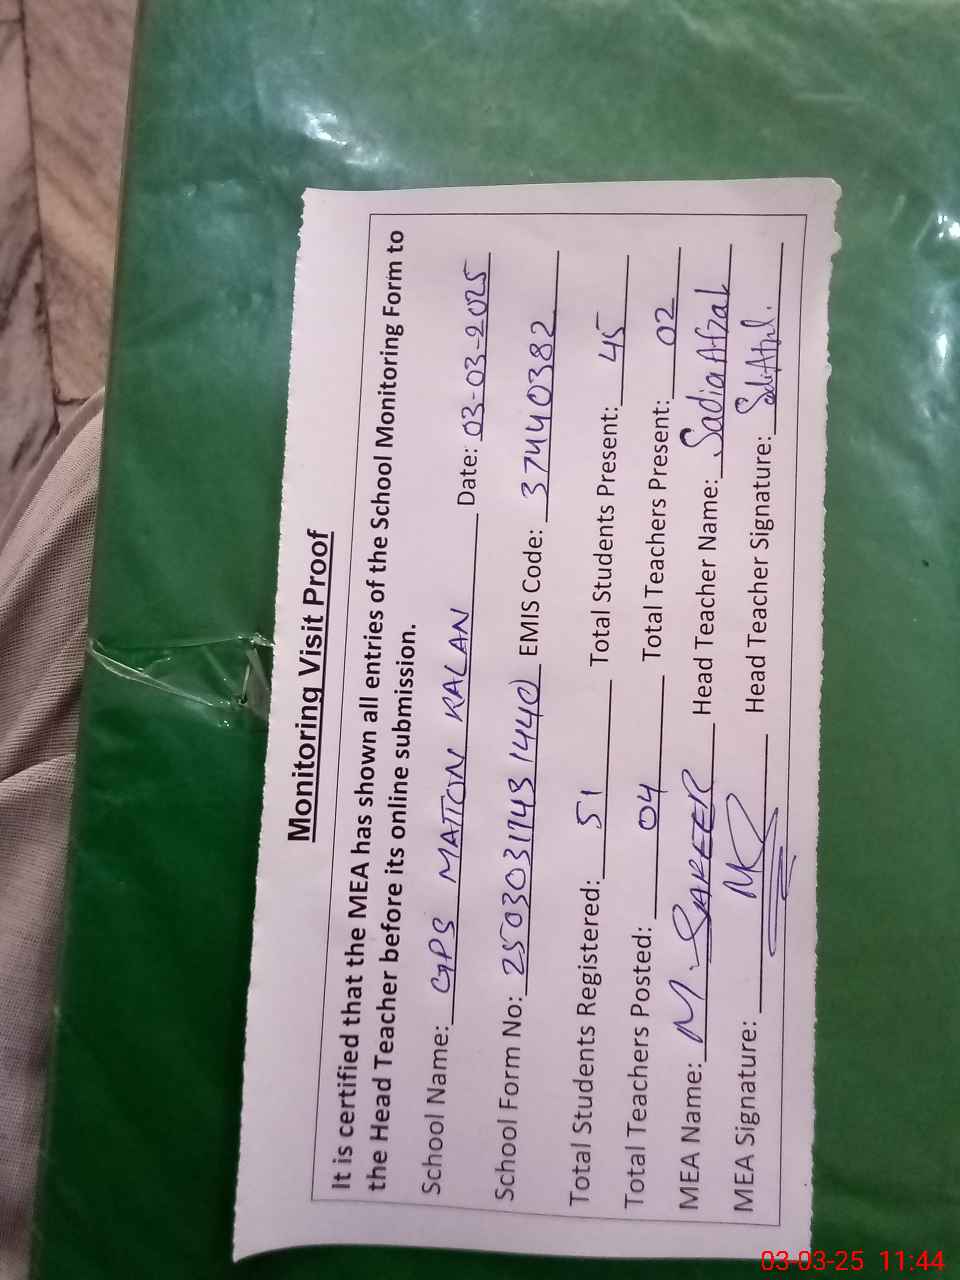 Monitoring Visit Proof
It is certified that the MEA has shown all entries of the School Monitoring Form to
the Head Teacher before its online submission.
School Name: GPS MATTON KALAN Date: 03-03-2025
School Form No: 25030317431440 EMIS Code: 37440382
Total Students Registered: 51 Total Students Present: 45
Total Teachers Posted: 04 Total Teachers Present: 02
MEA Name: M. Head Teacher Name: Sadia Afzal
MEA Signature: Head Teacher Signature:
03-03-25 11:44